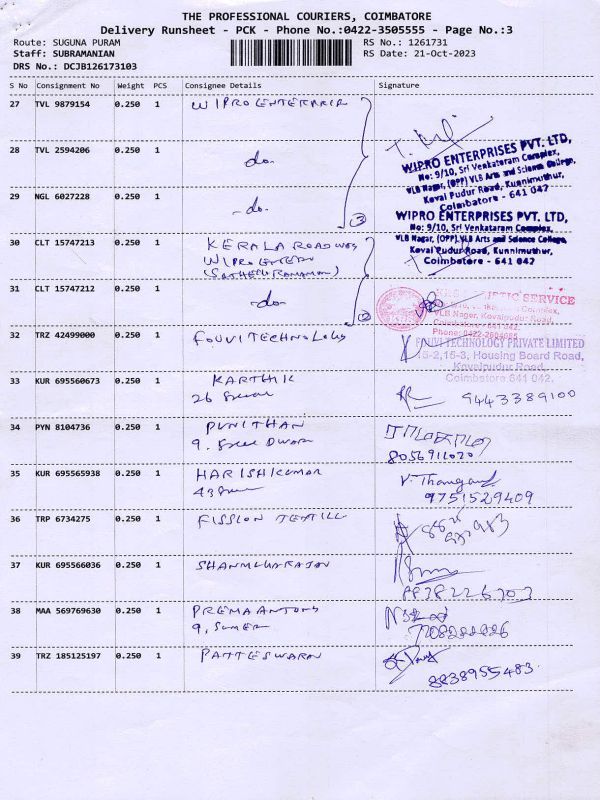 THE PROFESSIONAL COURIERS, COIMBATORE
Delivery Runsheet - PCK - Phone No.:0422-3505555 - Page No.:3
Route: SUGUNA PURAM RS No.: 1261731
Staff: SUBRAMANIAN RS Date: 21-Oct-2023
DRS No.: DCJB126173103
S No Consignment No Weight PCS Consignee Details Signature
27 TVL 9879154 0.250 1 WIPRO ENTERPRISE
28 TVL 2594206 0.250 1 do.
WIPRO ENTERPRISES PVT. LTD,
No: 9/10, Sri Venkataram Complex,
VLB Nagar, (OPP) VLB Arts and Science College,
Kovai Pudur Road, Kunnimuthur,
Coimbatore - 641 042
29 NGL 6027228 0.250 1 - do. 3
WIPRO ENTERPRISES PVT. LTD,
No: 9/10, Sri Venkataram Complex,
VLB Nagar, (OPP) VLB Arts and Science College,
Kovai Pudur Road, Kunnimuthur,
Coimbatore - 641 042
30 CLT 15747213 0.250 1 KERALA ROADWAYS
WIPRO ENTERP
31 CLT 15747212 0.250 1 - do. 2
SERVICE
Complex,
VLB Nagar, Kovaipudur Road,
Coimbatore 641 042.
32 TRZ 42499000 0.250 1 FOUVI TECHNOLOGY
FOUVI TECHNOLOGY PRIVATE LIMITED
15-2,16-3, Housing Board Road,
Kovaipudur Road,
Coimbatore 641 042.
33 KUR 695560673 0.250 1 KARTHIK
26
9443389100
34 PYN 8104736 0.250 1 PUNITHAN
9,
8056911020
35 KUR 695565938 0.250 1 HARISHKUMAR
43
V. Thangavel
9751529409
36 TRP 6734275 0.250 1 FISSION TEXTILE
37 KUR 695566036 0.250 1 SHANMUGARAJAN
9838226703
38 MAA 569769630 0.250 1 PREMA ANTONY
9,
39 TRZ 185125197 0.250 1 PATTESWARN
8838955483